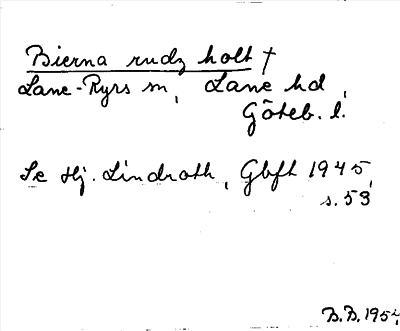 Bierna rudz holt †
Lane-Ryrs sn, Lane hd,
Göteb. l.
Se Hj. Lindroth, Gbft 1945,
s. 53
B.B. 1954